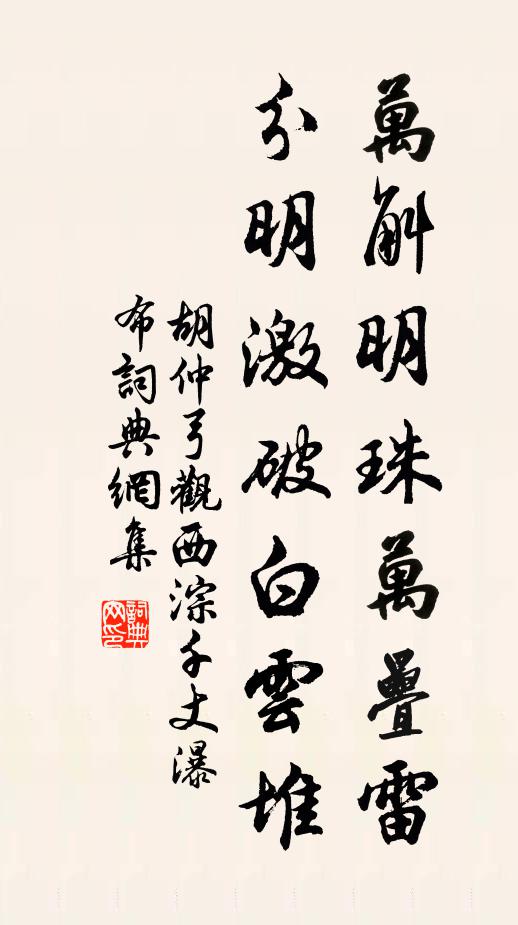 萬斛明珠萬疊雷
分明激破白雲堆
胡仲弓觀西淙千丈瀑
布詞典網集
詞典网印